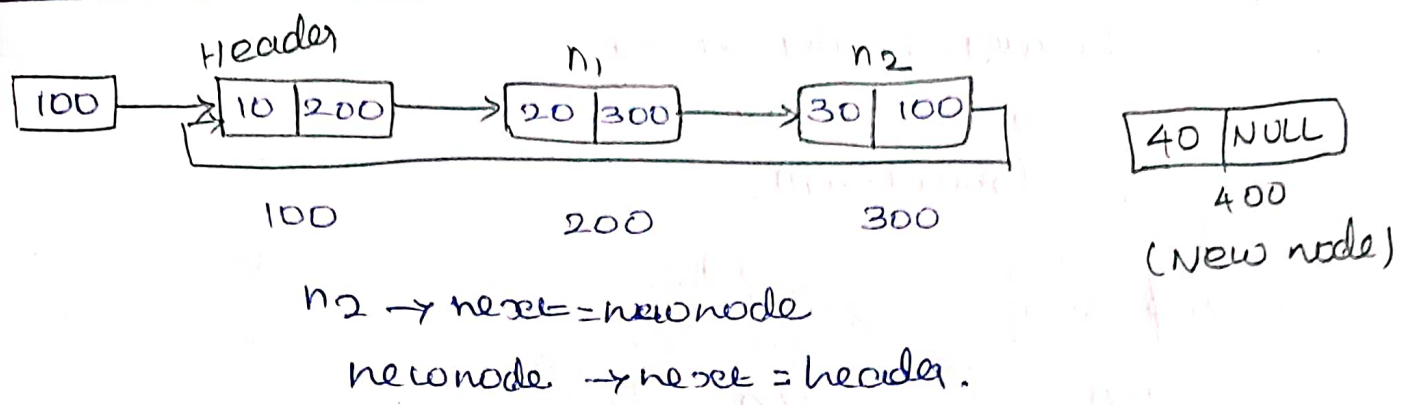 Header n1 n2
100 10 200 20 300 30 100 40 NULL
100 200 300 400
(New node)
n2 → next = newnode
newnode → next = header.